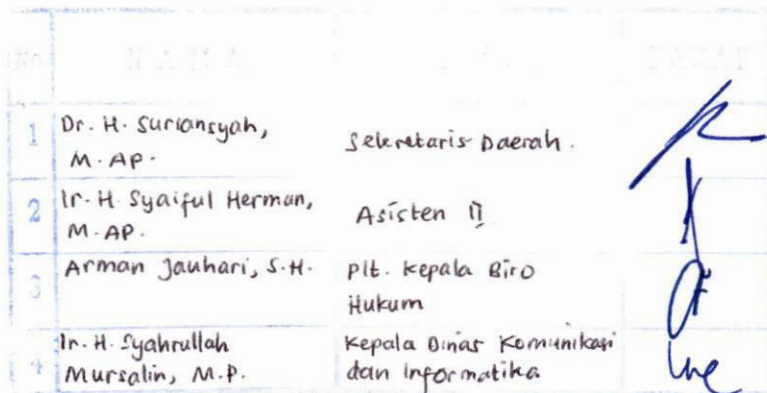 No. N A M A PARAF
1 Dr. H. Suriansyah, Sekretaris Daerah.
M.AP.
2 Ir. H. Syaiful Herman, Asisten II
M.AP.
3 Arman Jauhari, S.H. Plt. Kepala Biro
Hukum
4 Ir. H. Syahrullah Kepala Dinas Komunikasi
Mursalin, M.P. dan Informatika